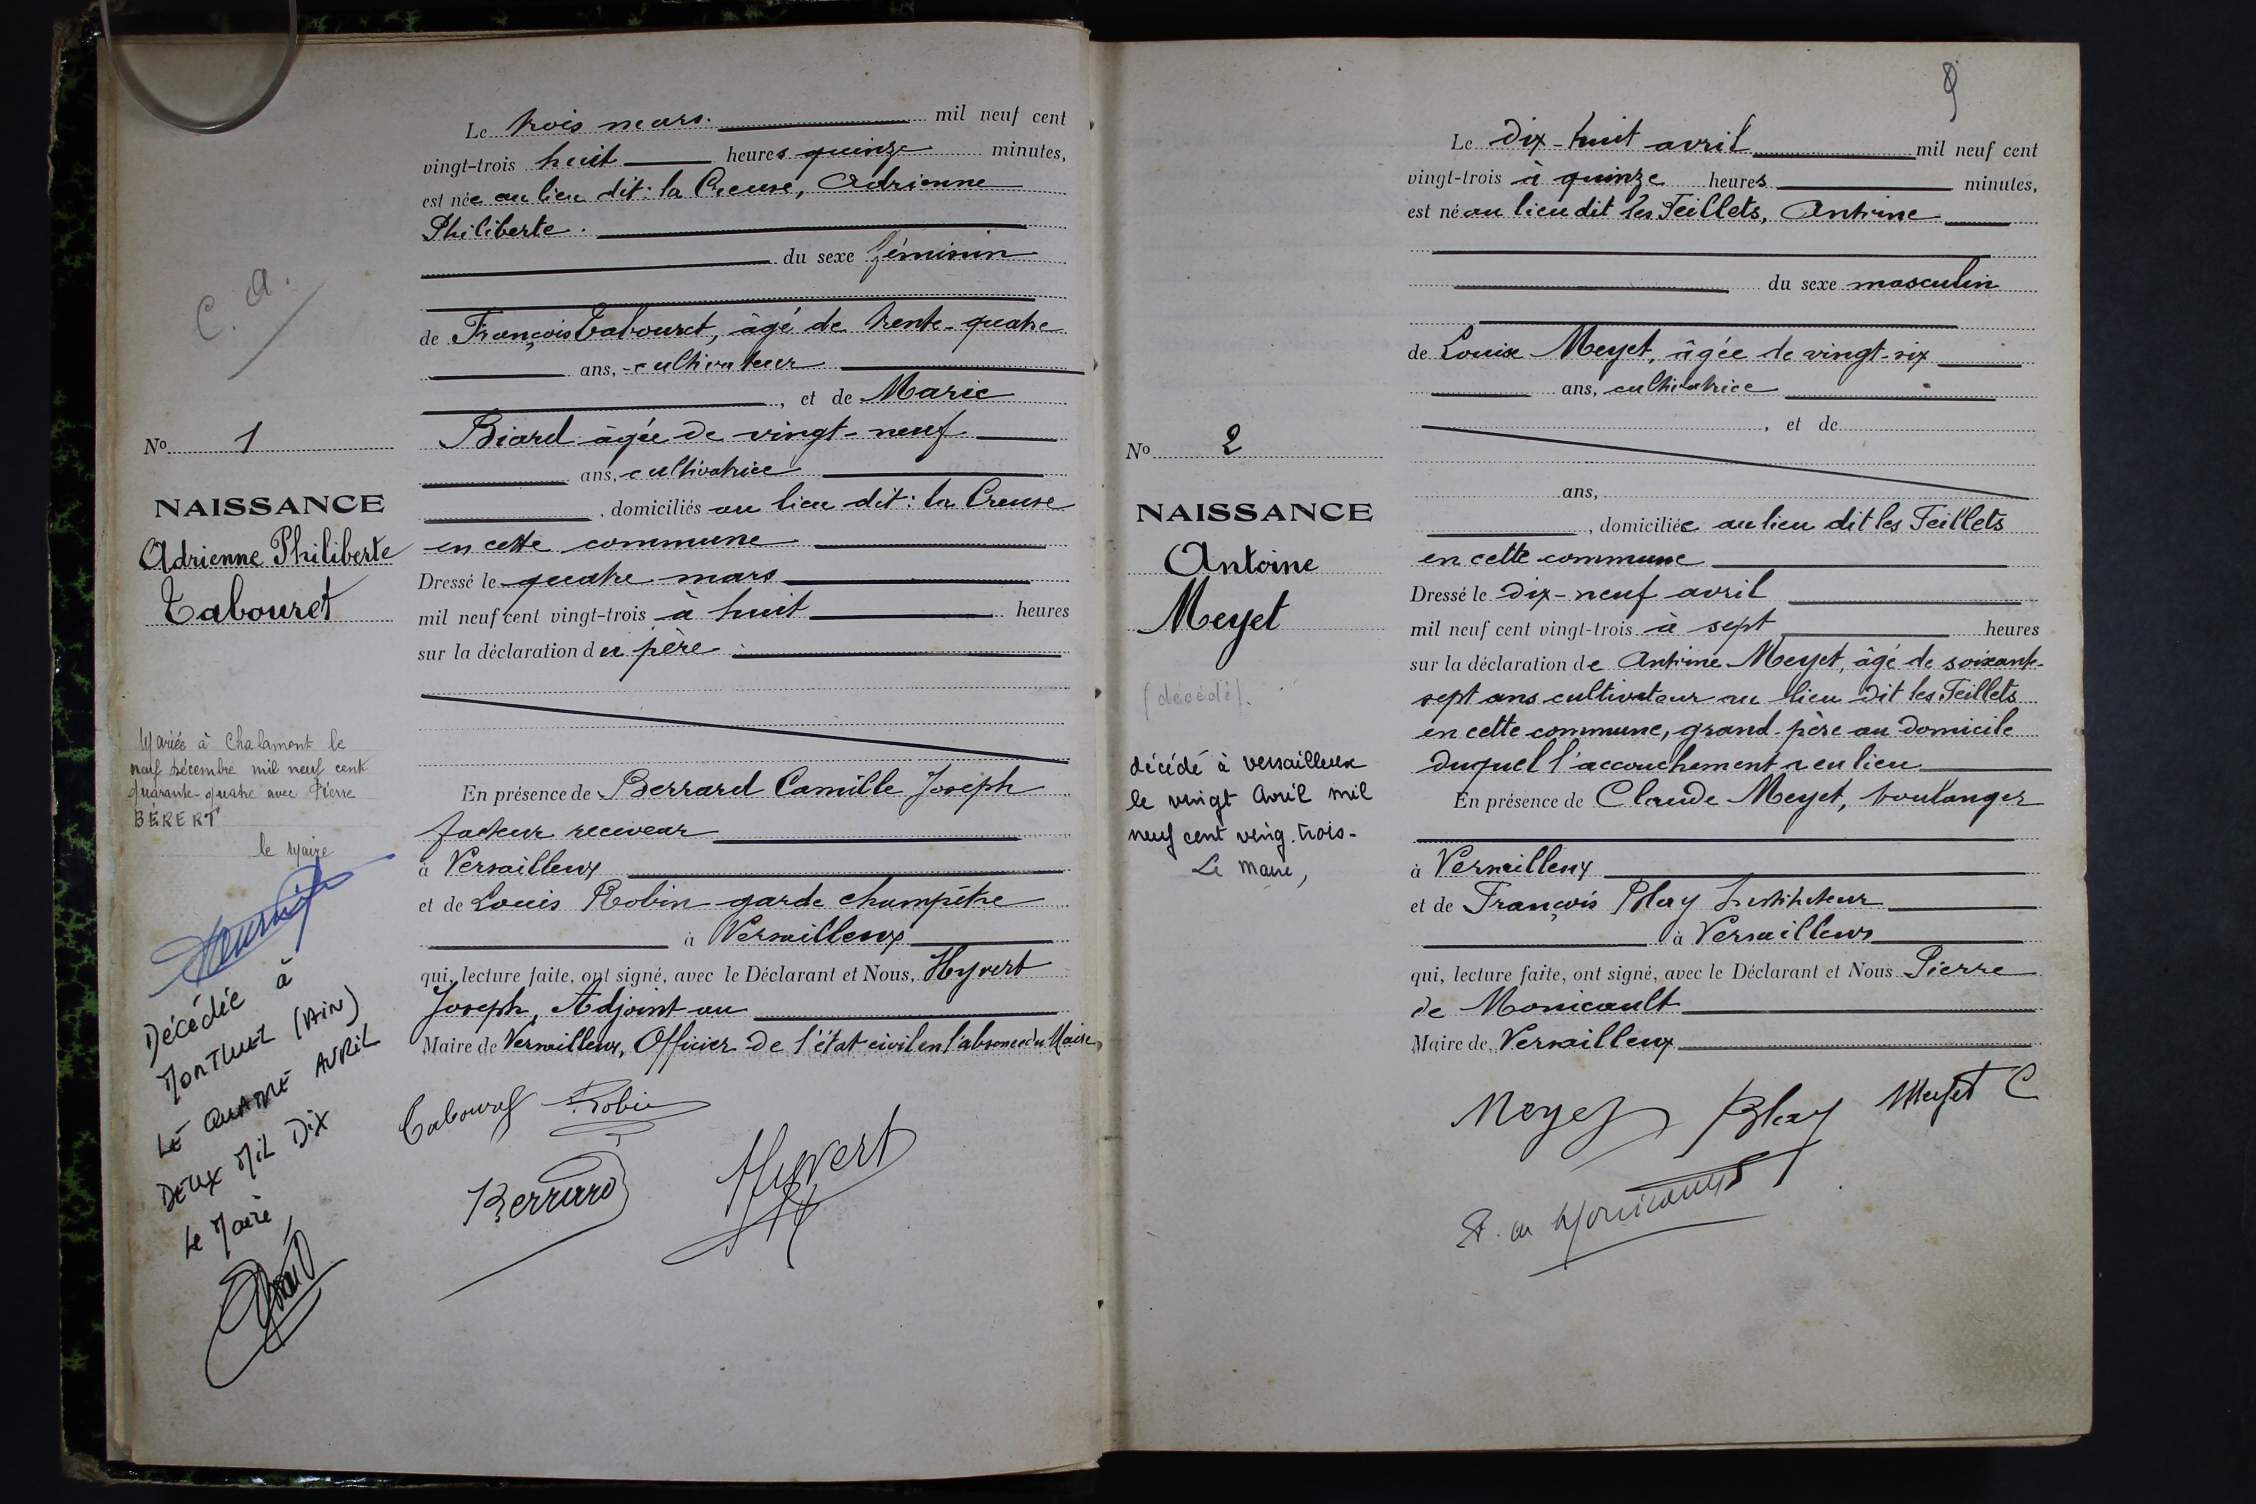 C. A.
No 1
NAISSANCE
Adrienne Philiberte
Tabouret
Mariée à Chalamont le
neuf décembre mil neuf cent
quarante-quatre avec Pierre
BÉRERT
le Maire
Décédée à
MONTLUEL (AIN)
LE QUATRE AVRIL
DEUX MIL DIX
Le Maire,
Le trois mars. mil neuf cent
vingt-trois huit heures quinze minutes,
est née au lieu dit: la Creuse, Adrienne
Philiberte.
du sexe féminin
de François Tabouret, âgé de trente-quatre
ans, cultivateur
, et de Marie
Biard âgée de vingt-neuf
ans, cultivatrice
, domiciliés au lieu dit: la Creuse
en cette commune
Dressé le quatre mars
mil neuf cent vingt-trois à huit heures
sur la déclaration du père
En présence de Berrard Camille Joseph
facteur receveur
à Versailleux
et de Louis Robin garde champêtre
à Versailleux
qui, lecture faite, ont signé, avec le Déclarant et Nous, Hyvert
Joseph, Adjoint au
Maire de Versailleux, Officier de l'état civil en l'absence du Maire,
Tabouret Robin
Berrard Hyvert
9
No 2
NAISSANCE
Antoine
Meyet
(décédé).
décédé à Versailleux
le vingt Avril mil
neuf cent ving. trois-
Le Maire,
Le Dix-huit avril mil neuf cent
vingt-trois à quinze heures minutes,
est né au lieu dit les Teillets, Antoine
du sexe masculin
de Louise Meyet, âgée de vingt-six
ans, cultivatrice
, et de
ans,
, domiciliée au lieu dit les Teillets
en cette commune
Dressé le dix-neuf avril
mil neuf cent vingt-trois à sept heures
sur la déclaration de Antoine Meyet, âgé de soixante-
sept ans cultivateur au lieu dit les Teillets
en cette commune, grand-père au domicile
duquel l'accouchement a eu lieu
En présence de Claude Meyet, boulanger
à Versailleux
et de François Blay Instituteur
à Versailleux
qui, lecture faite, ont signé, avec le Déclarant et Nous Pierre
de Monicault
Maire de Versailleux
Meyet Blay Meyet C
P. de Monicault